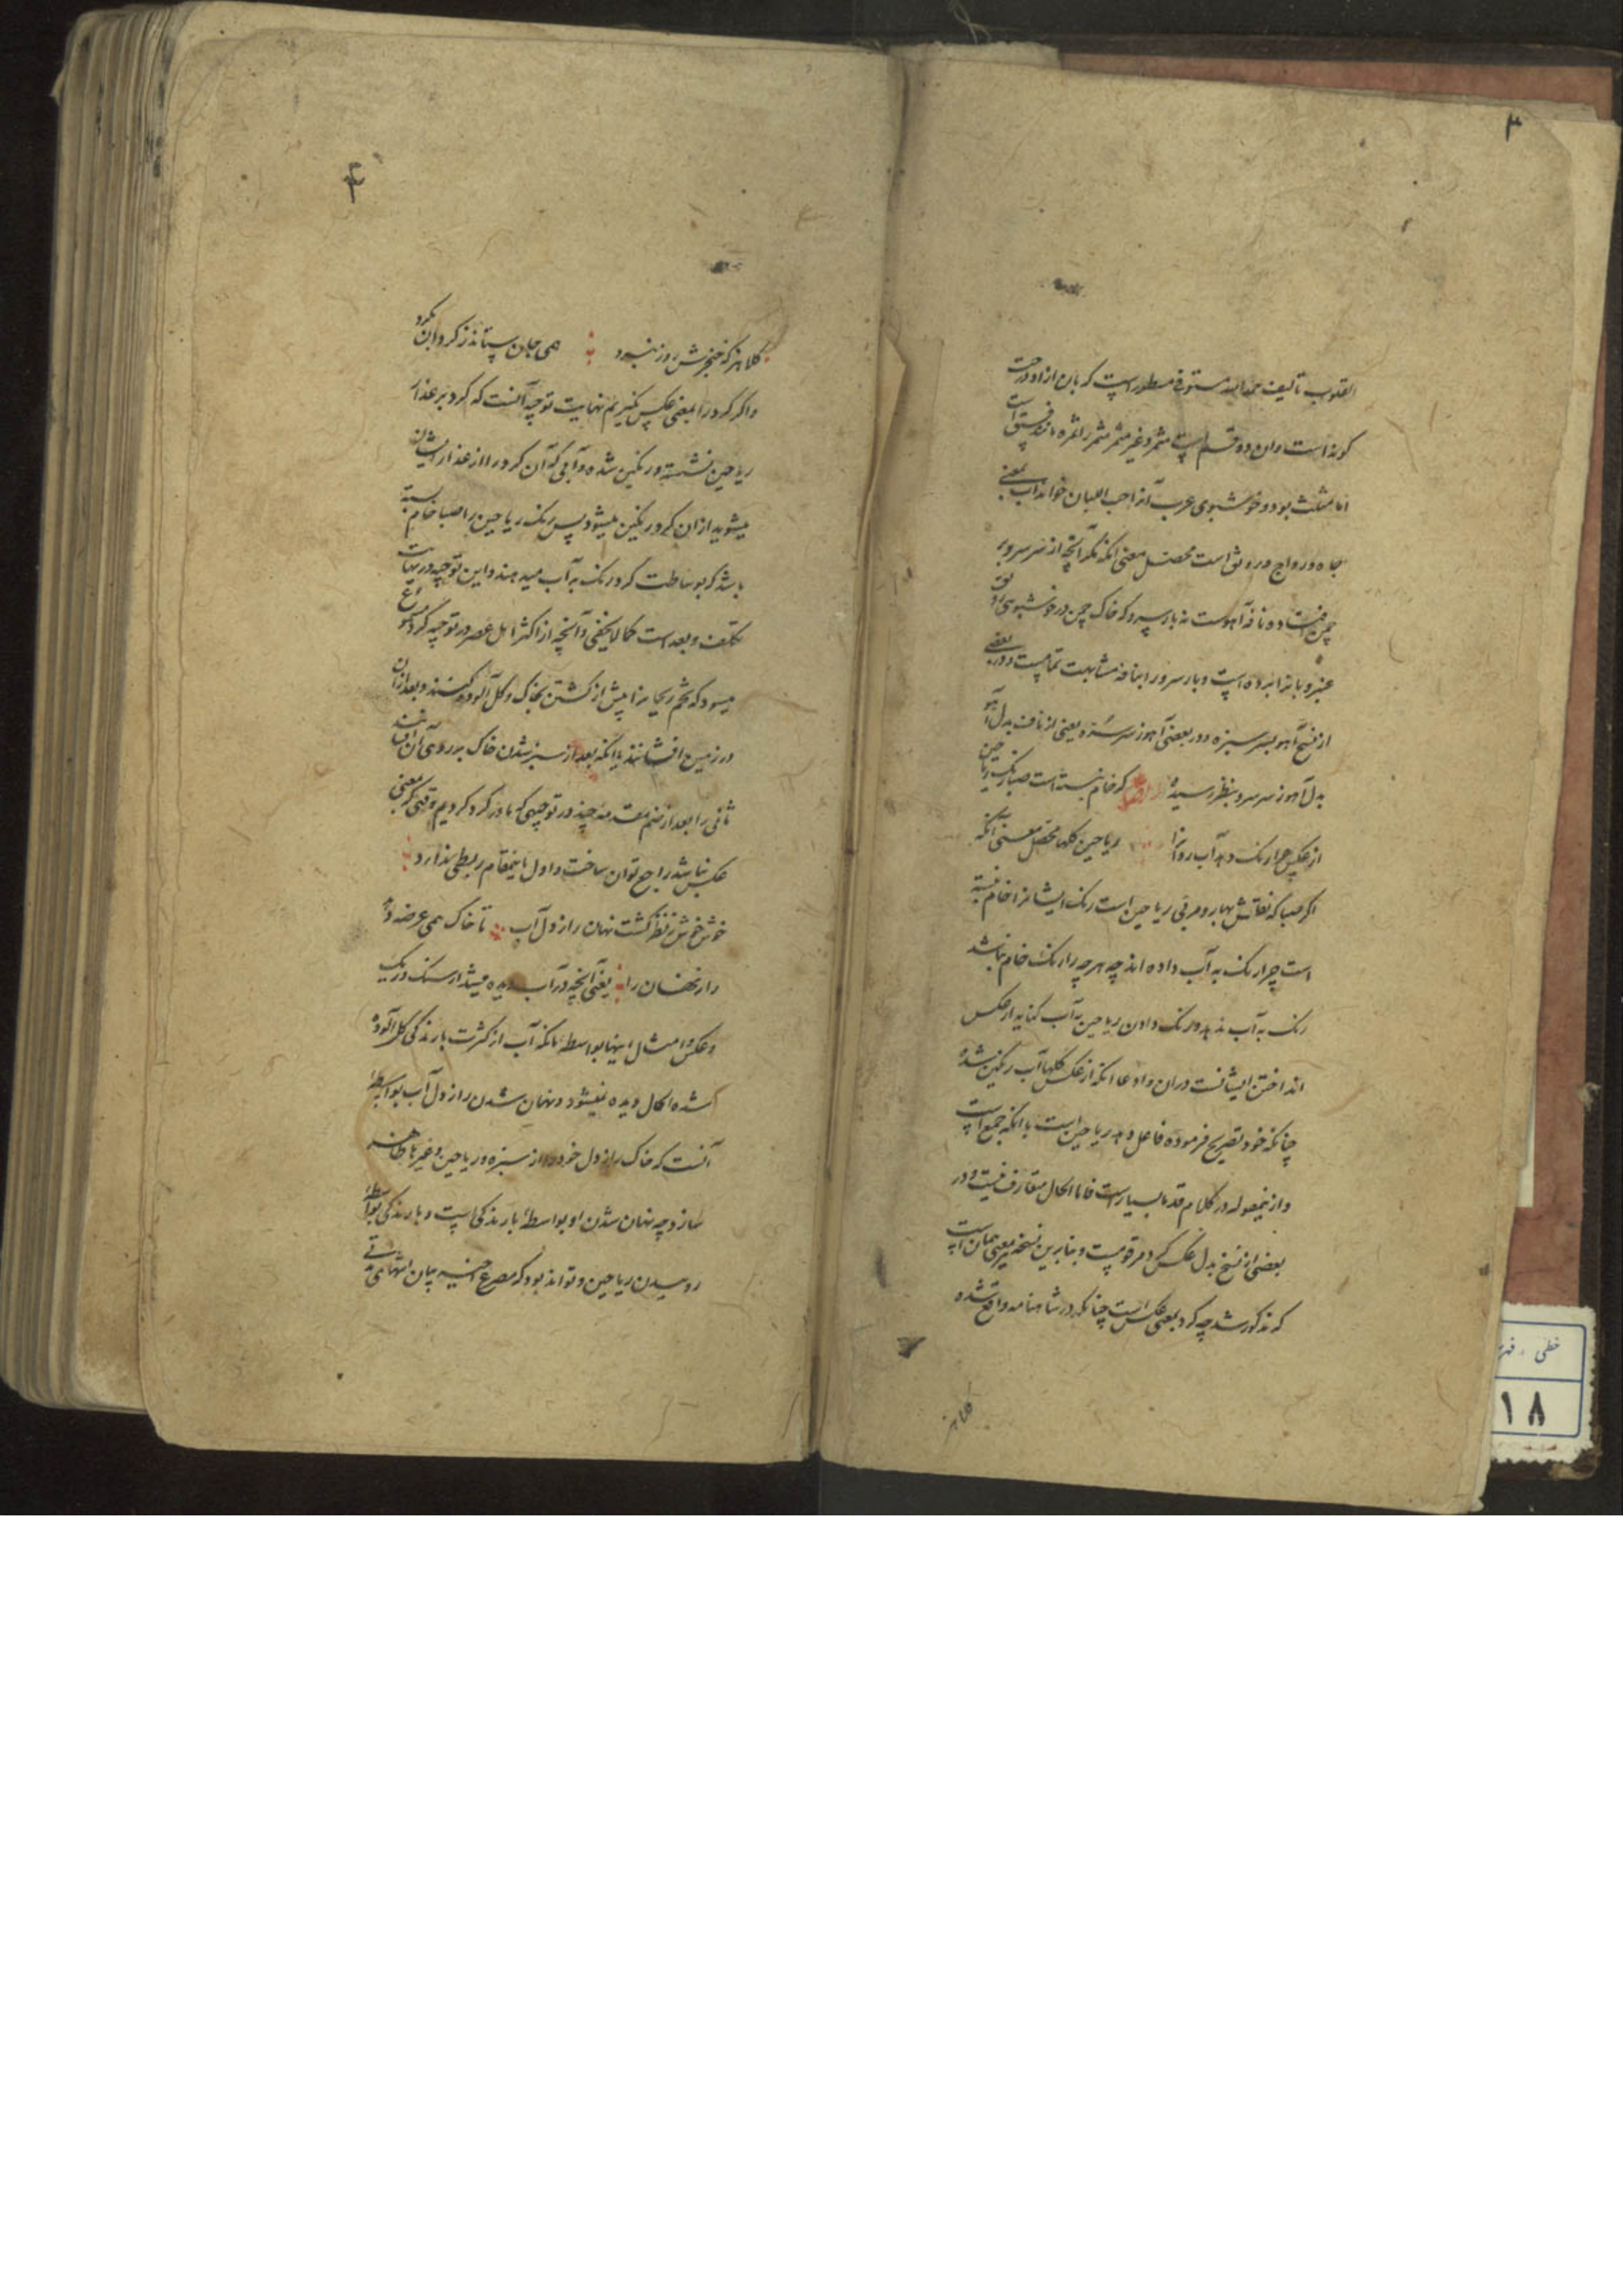 ۳
القلوب تألیف حمد الله مستوفی مسطور است که بان ازاد درخت
کونه است و ان دو قسم است مثمر و غیر مثمر مثمر را ثمره مانند فستق است
اما مثلث بود و خوشبوی عرب آنرا حب البان خوانند آب بمعنی
جاه و رواج و رونق است محصل معنی آنکه مکر آنچه از سر سرو بر
چمن افتاده نافه آهوست نه بار سرو که خاک چمن در خوشبوئی رونق
عنبر و بانرا برده است و بار سرو را بنافه مشابهت تمامیست و در بعضی
از نسخ آهو بسر سبزه و در بعضی آهو ز سر سبزه یعنی از نافت بدل آهو
بدل آهو ز سر سرو بنظر رسیده کر خام نبسته است صبا رنک ریاحین
از عکس چرا رنک دهد آب روانرا ریاحین کلها محصل معنی آنکه
اکر صبا که نقاش بهار و مربی ریاحین است رنک ایشانرا خام نبسته
است چرا رنک به آب داده اند چه هر چه را رنک خام نباشد
رنک به آب ندهد و رنک دادن ریاحین به آب کنایه از عکس
انداختن ایشانست در ان و ادعا انکه از عکس کلها آب رنکین شده
چنانکه خود تصریح فرموده فاعل دهد ریاحین است با انکه جمع است
و از ینمقوله در کلام قدما بسیار است فاما الحال متعارف نیست و در
بعضی از نسخ بدل عکس کرد مرقومست و بنابرین نسخه نیز معنی همان است
که مذکور شد چه کرد بمعنی عکس است چنانکه در شاهنامه واقع شده
۴
کلا هر که خنجرش روز نبرد همی جان ستاند ز کردان بکرد
و اکر کرد را بمعنی عکس نکیریم نهایت توجیه آنست که کرد بر عذار
ریاحین نشسته و رنکین شده و آبی که آن کرد را از عذار ایشان
میشوید از ان کرد رنکین میشود پس رنک ریاحین را صبا خام بسته
باشد که بوساطت کرد رنک به آب میدهند و این توجیه در نهایت
تکلف و بعد است کما لا یخفی و آنچه از اکثر اهل عصر در توجیه کرد
میشود که تخم ریحانرا پیش از کشتن بخاک و کل آلوده کنند و بعد از ان
در زمین افشانند یا انکه بعد از سبز شدن خاک بر روی آن افشانند
ثانی را بعد از ضم مقدمه چند در توجیهی که ما در کرد کردیم وقتی که بمعنی
عکس نباشد راجع توان ساخت و اول باینمقام ربطی ندارد
خوش خوش ز نظر کشت نهان راز دل آب تا خاک همی عرضه دهد
راز نهان را یعنی آنچه در آب دیده میشد از سنک و ریک
و عکس و امثال اینها بواسطه انکه آب از کثرت بارندکی کل آلوده
شده الحال دیده نمیشود و نهان شدن راز دل آب بواسطه
آنست که خاک راز دل خود را از سبزه و ریاحین و غیرها ظاهر
سازد چه نهان شدن او بواسطه بارندکی است و بارندکی بواسطه
روییدن ریاحین و تواند بود که مصرع اخیر بیان انتهای
خطی
۱۸